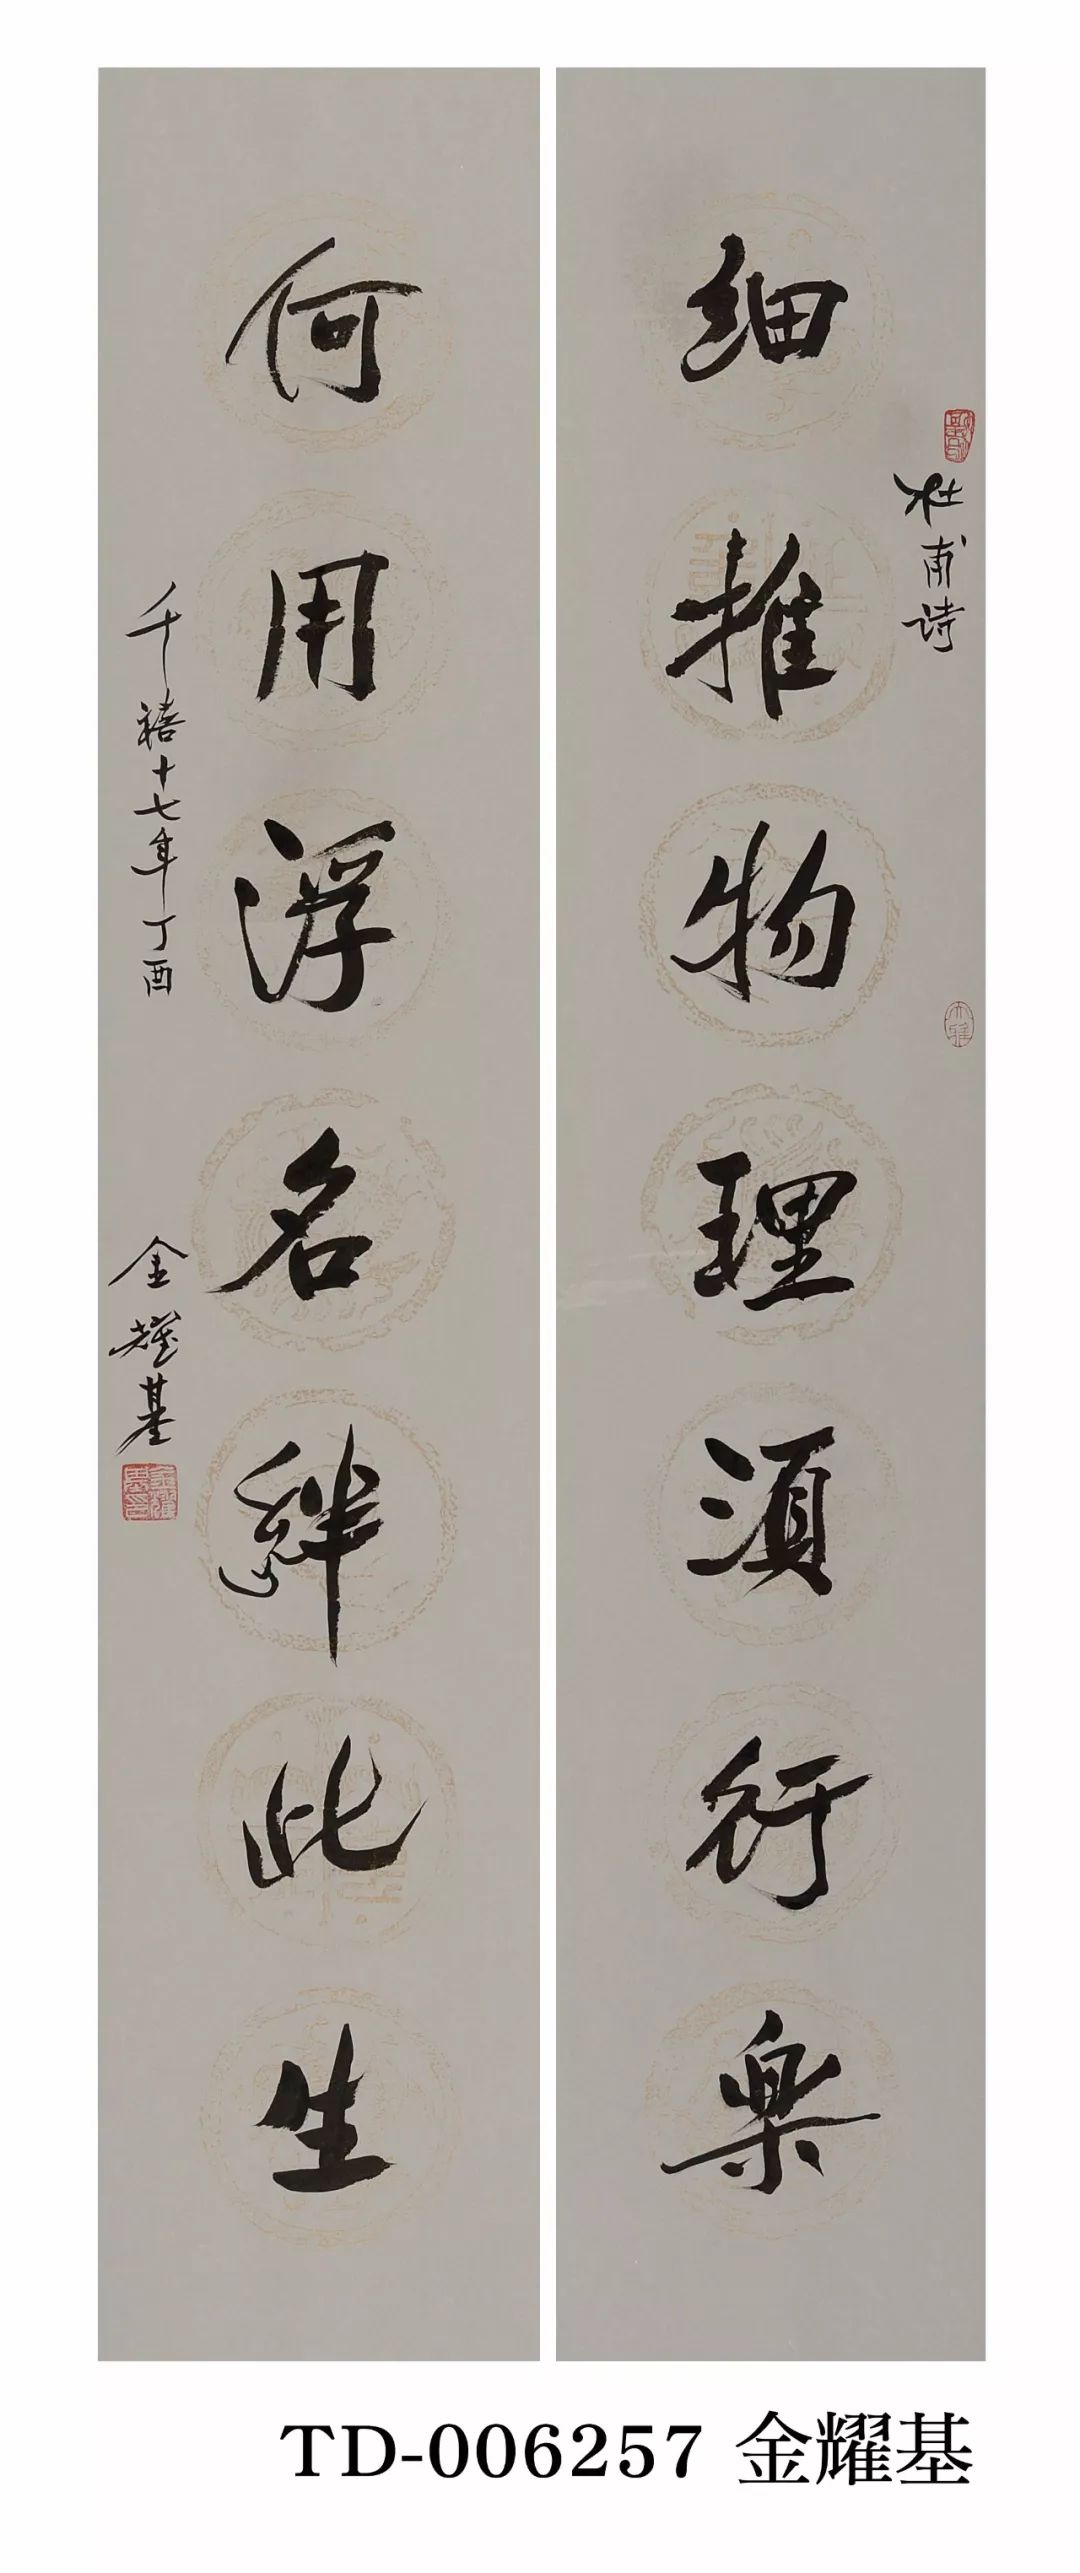 杜甫诗
细推物理须行樂
何用浮名絆此生
千禧十七年丁酉
金耀基
TD-006257 金耀基